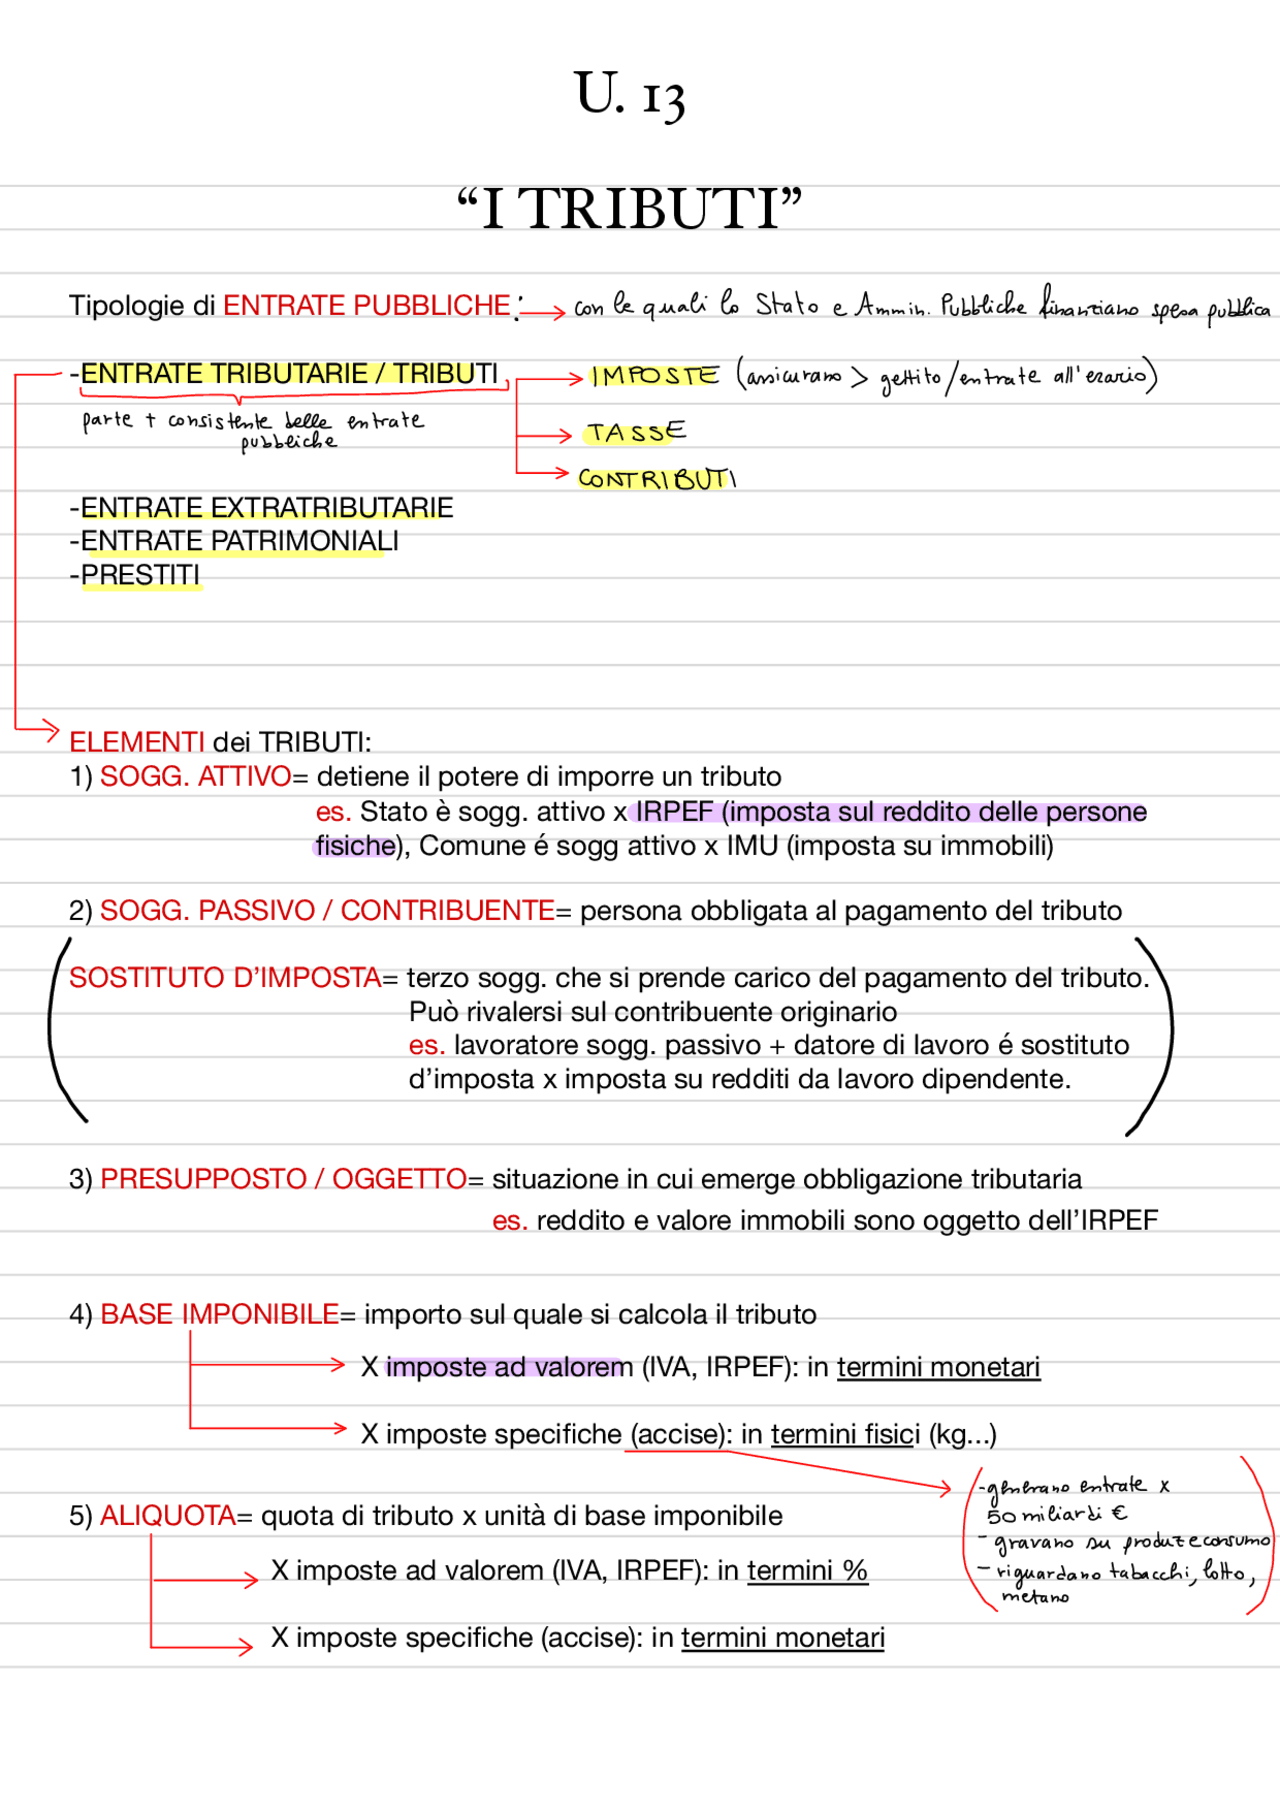 U. 13
“I TRIBUTI”
Tipologie di ENTRATE PUBBLICHE: → con le quali lo Stato e Ammin. Pubbliche finanziano spesa pubblica
-ENTRATE TRIBUTARIE / TRIBUTI → IMPOSTE (assicurano > gettito/entrate all'erario)
parte + consistente delle entrate
pubbliche
→ TASSE
→ CONTRIBUTI
-ENTRATE EXTRATRIBUTARIE
-ENTRATE PATRIMONIALI
-PRESTITI
ELEMENTI dei TRIBUTI:
1) SOGG. ATTIVO= detiene il potere di imporre un tributo
es. Stato è sogg. attivo x IRPEF (imposta sul reddito delle persone
fisiche), Comune é sogg attivo x IMU (imposta su immobili)
2) SOGG. PASSIVO / CONTRIBUENTE= persona obbligata al pagamento del tributo
SOSTITUTO D’IMPOSTA= terzo sogg. che si prende carico del pagamento del tributo.
Può rivalersi sul contribuente originario
es. lavoratore sogg. passivo + datore di lavoro é sostituto
d’imposta x imposta su redditi da lavoro dipendente.
3) PRESUPPOSTO / OGGETTO= situazione in cui emerge obbligazione tributaria
es. reddito e valore immobili sono oggetto dell’IRPEF
4) BASE IMPONIBILE= importo sul quale si calcola il tributo
X imposte ad valorem (IVA, IRPEF): in termini monetari
X imposte specifiche (accise): in termini fisici (kg...)
-generano entrate x
50 miliardi €
- gravano su produz e consumo
- riguardano tabacchi, lotto,
metano
5) ALIQUOTA= quota di tributo x unità di base imponibile
X imposte ad valorem (IVA, IRPEF): in termini %
X imposte specifiche (accise): in termini monetari